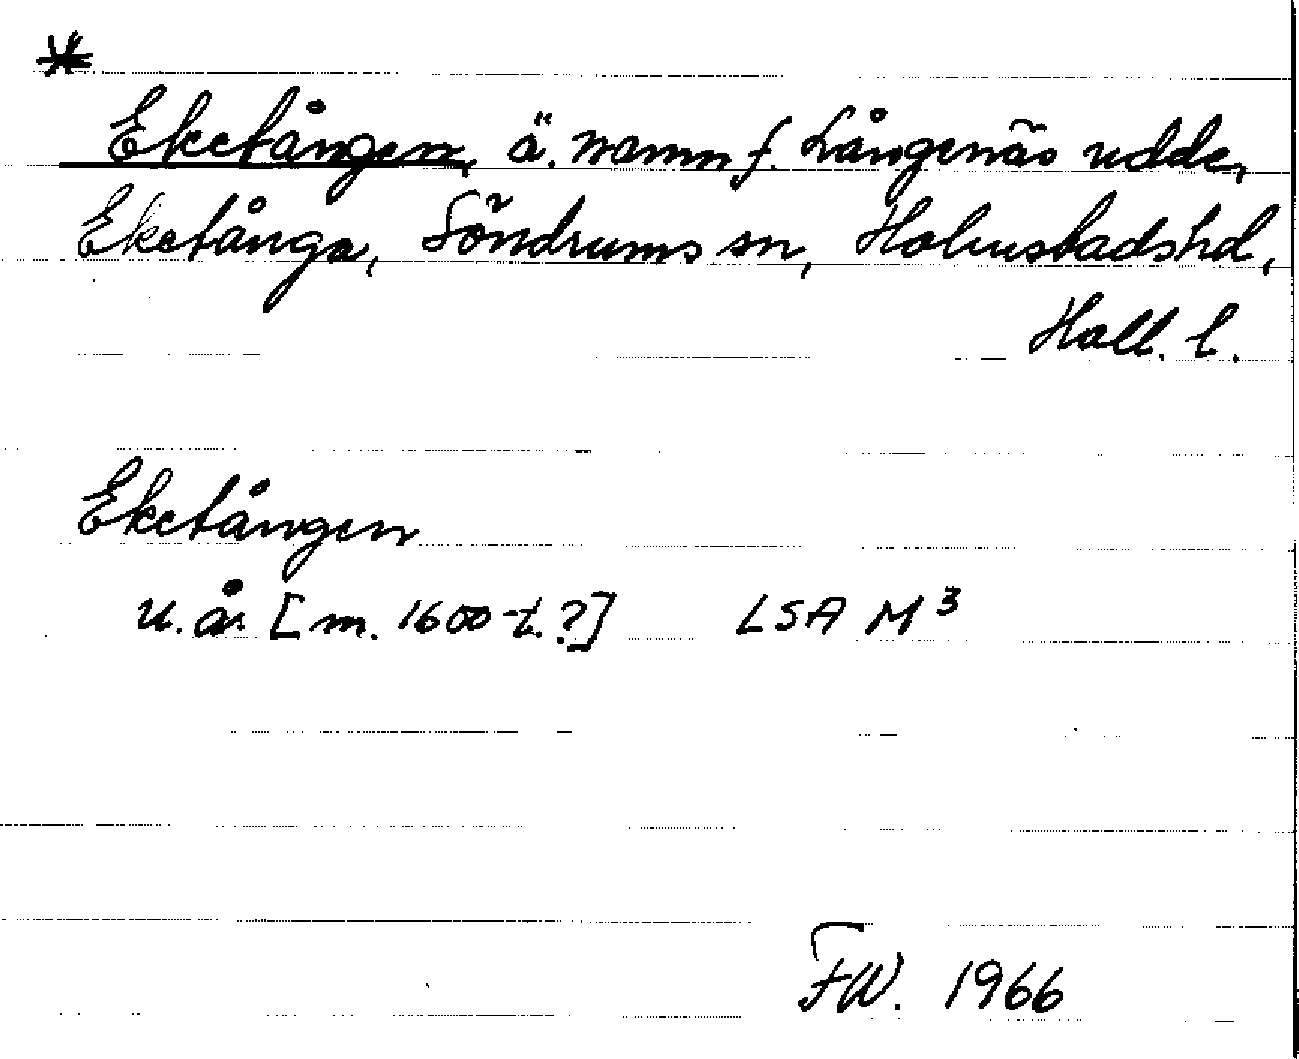 *
Eketången, ä. namn f. Långenäs udde,
Eketånga, Söndrums sn, Halmstads hd,
Hall. l.
Eketången
u. å. [m. 1600-t.?] LSA M3
FW. 1966